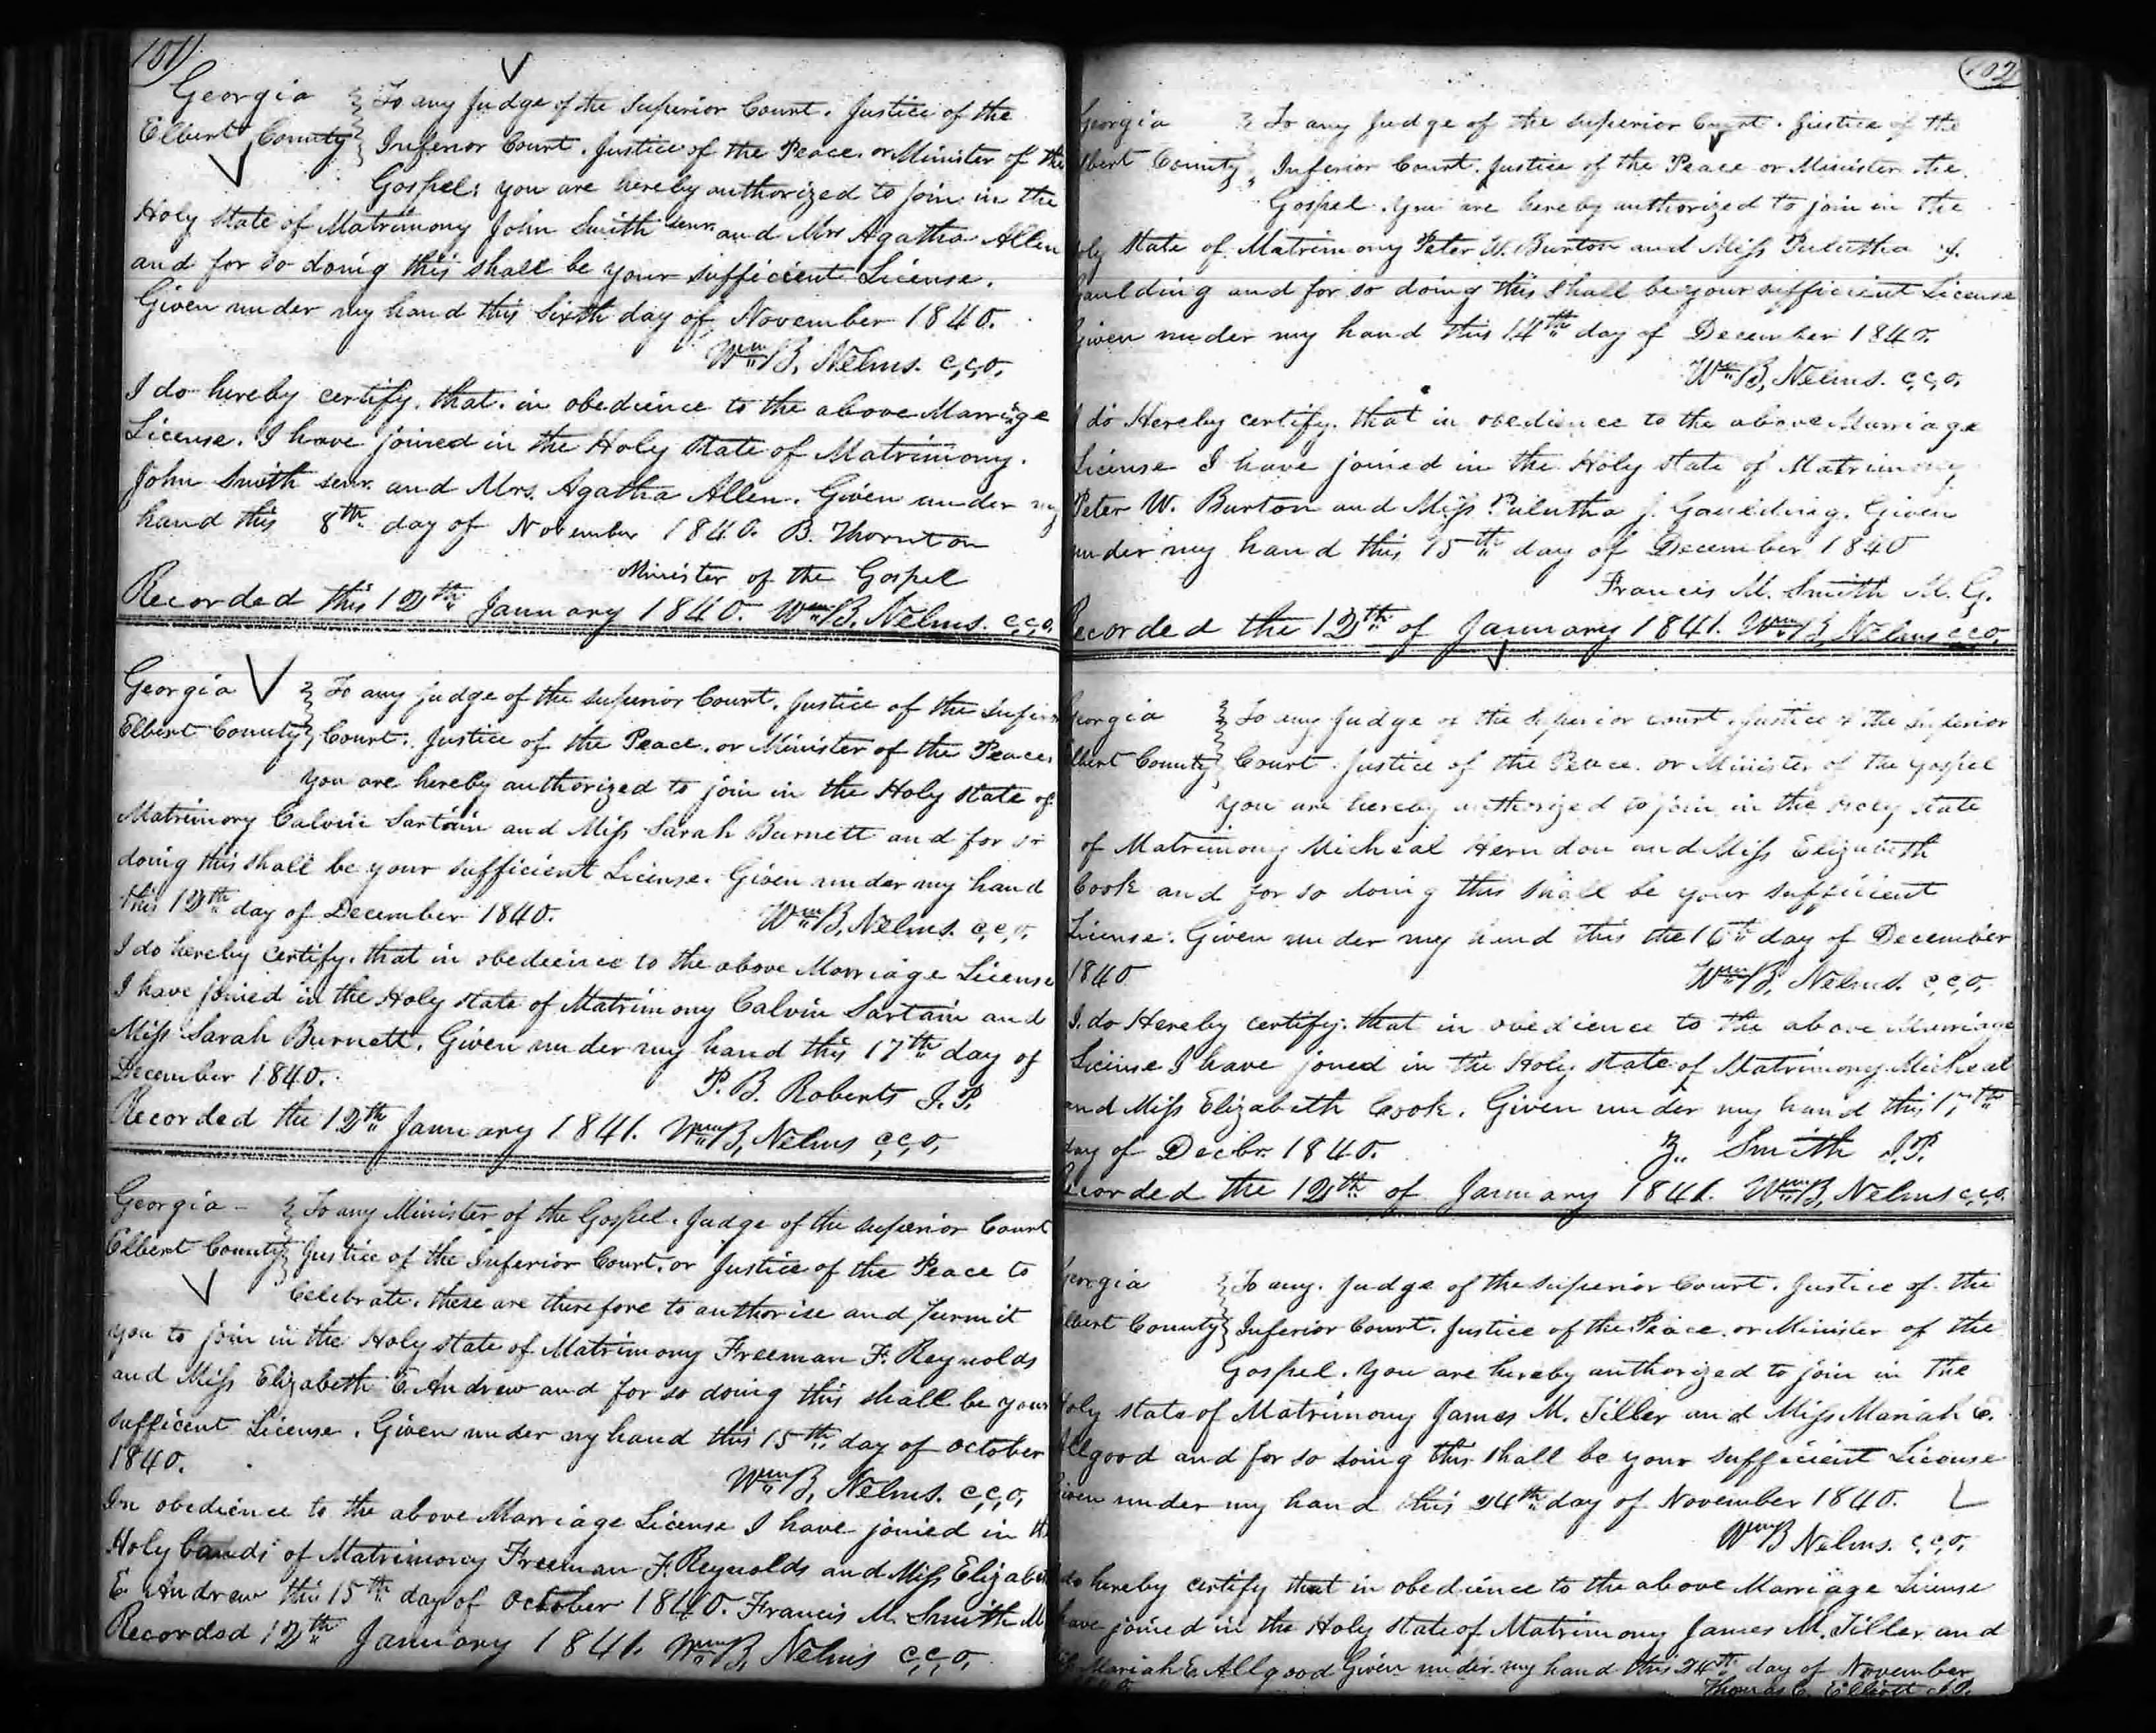 101
Georgia To any Judge of the Superior Court. Justice of the
Elbert County Inferior Court. Justice of the Peace. or Minister of the
Gospel: you are hereby authorized to join in the
Holy state of Matrimony John Smith senr. and Mrs Agatha Allen
and for so doing this shall be your sufficient License.
Given under my hand this Sixth day of November 1840.
Wm B, Nelms. c,c,o,
I do hereby certify. that. in obedience to the above Marriage
License. I have joined in the Holy state of Matrimony.
John Smith senr. and Mrs. Agatha Allen. Given under my
hand this 8th day of November 1840. B. Thornton
Minister of the Gospel
Recorded this 12th January 1840. Wm B, Nelms. c,c,o,
Georgia To any Judge of the Superior Court. Justice of the
Elbert County Court. Justice of the Peace. or Minister of the Peace,
you are hereby authorized to join in the Holy state of
Matrimony Calvin Sartain and Miss Sarah Burnett and for so
doing this shall be your sufficient License. Given under my hand
this 12th day of December 1840. Wm B, Nelms. c,c,o,
I do hereby certify. that in obedience to the above Marriage License
I have joined in the Holy state of Matrimony Calvin Sartain and
Miss Sarah Burnett. Given under my hand this 17th day of
December 1840. P. B. Roberts J.P.
Recorded the 12th January 1841. Wm B, Nelms c,c,o,
Georgia - To any Minister of the Gospel. Judge of the Superior Court
Elbert County Justice of the Inferior Court. or Justice of the Peace to
Celebrate. these are therefore to authorise and permit
you to join in the Holy state of Matrimony Freeman F. Reynolds
and Miss Elizabeth E. Andrew and for so doing this shall be your
sufficent License. Given under my hand this 15th day of October
1840.
Wm B, Nelms. c,c,o,
In obedience to the above Marriage License I have joined in the
Holy bands of Matrimony Freeman F. Reynolds and Miss Elizabe
E. Andrew this 15th day of October 1840. Francis M. Smith M
Recorded 12th January 1841. Wm B, Nelms c,c,o,
102
Georgia To any Judge of the Superior Court. Justice of the
lbert County Inferior Court. Justice of the Peace or Minister the.
Gospel. you are hereby authorized to join in the
oly state of Matrimony Peter W. Burton and Miss J.
Gaulding and for so doing this shall be your sufficient License
Given under my hand this 14th day of December 1840.
Wm B, Nelms. c,c,o,
I do Hereby certify. that in obedience to the above Marriage
License I have joined in the Holy state of Matrimony
Peter W. Burton and Miss J. Gaulding. Given
under my hand this 15th day of December 1840
Francis M. Smith M. G.
Recorded the 12th of January 1841. Wm B, Nelms c,c,o,
Georgia To any Judge of the Superior court. Justice of the Inferior
lbert County Court. Justice of the Peace. or Minister of the Gospel
you are hereby authorized to join in the Holy state
of Matrimony Micheal Herndon and Miss Elizabeth
Cook and for so doing this shall be your sufficient
License. Given under my hand this the 16th day of December
1840 Wm B, Nelms. c,c,o,
I do Hereby certify. that in obedience to the above Marriage
License I have joined in the Holy state of Matrimony Micheal
and Miss Elizabeth Cook. Given under my hand this 17th
day of Decbr. 1840. Z. Smith J.P.
Recorded the 12th of January 1841. Wm B, Nelms c,c,o,
Georgia To any. Judge of the Superior Court. Justice of the
lbert County Inferior Court. Justice of the Peace. or Minister of the
Gospel. you are hereby authorized to join in the
Holy state of Matrimony James M. Tiller and Miss Mariah E.
Allgood and for so doing this shall be your sufficient License
Given under my hand this 24th day of November 1840.
Wm B Nelms. c,c,o,
do hereby certify that in obedience to the above Marriage License
have joined in the Holy state of Matrimony James M. Tiller and
Mariah E. Allgood Given under my hand this 24th day of November
Thomas C. Elliott J.P.